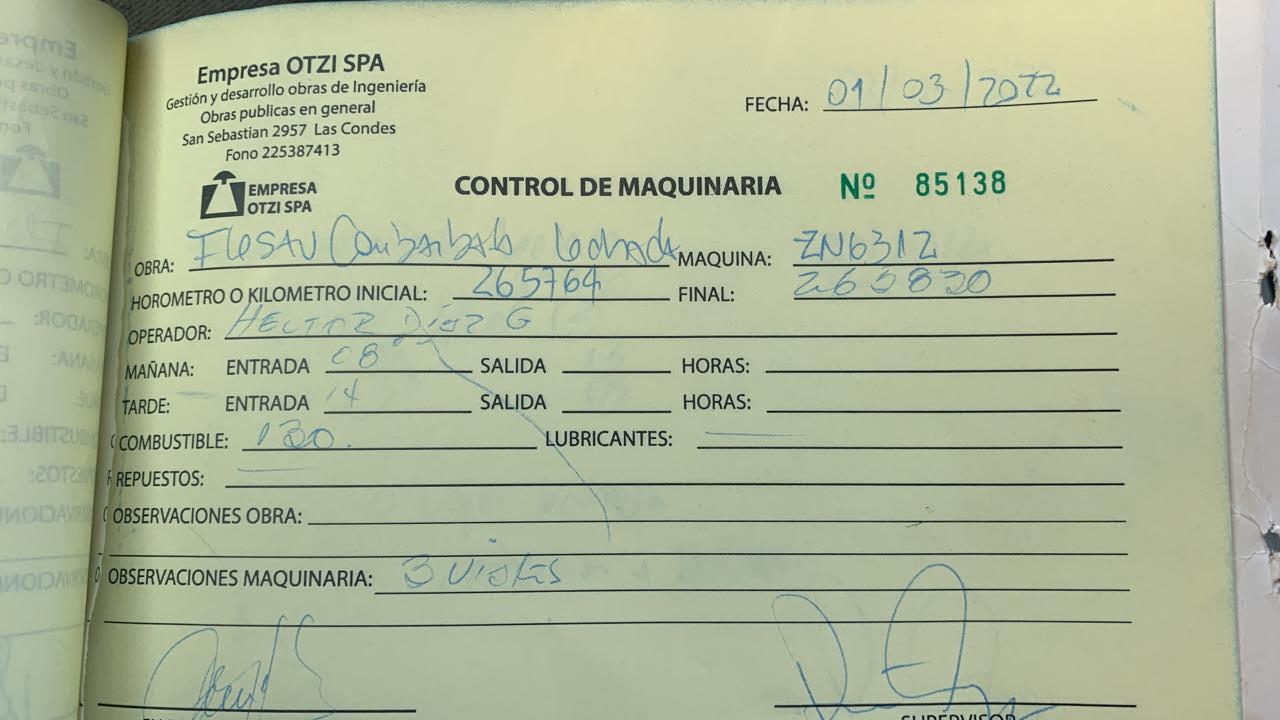 Empresa OTZI SPA
Gestión y desarrollo obras de Ingeniería
Obras publicas en general
San Sebastian 2957 Las Condes
Fono 225387413
FECHA: 01/03/2022
EMPRESA
OTZI SPA
CONTROL DE MAQUINARIA Nº 85138
OBRA: MAQUINA: ZN6312
HOROMETRO O KILOMETRO INICIAL: 265764 FINAL:
OPERADOR: HECTOR Díaz G
MAÑANA: ENTRADA 08 SALIDA HORAS:
TARDE: ENTRADA 14 SALIDA HORAS:
COMBUSTIBLE: 130. LUBRICANTES:
REPUESTOS:
OBSERVACIONES OBRA:
OBSERVACIONES MAQUINARIA: 3
SUPERVISOR